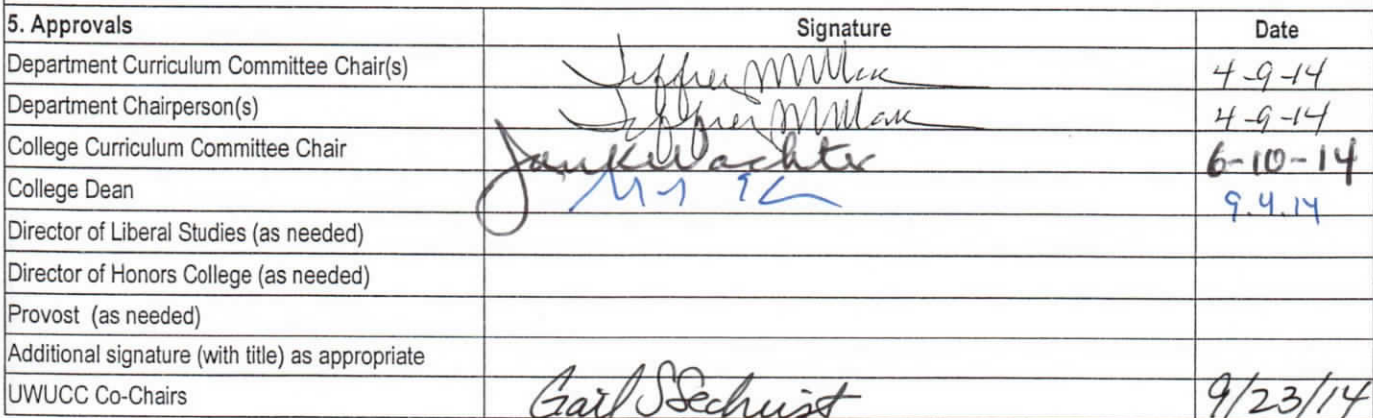 5. Approvals Signature Date
Department Curriculum Committee Chair(s) Jeffrey 4-9-14
Department Chairperson(s) Jeffrey 4-9-14
College Curriculum Committee Chair Jan K Wachter 6-10-14
College Dean 9.4.14
Director of Liberal Studies (as needed)
Director of Honors College (as needed)
Provost (as needed)
Additional signature (with title) as appropriate
UWUCC Co-Chairs Gail S Sechrist 9/23/14